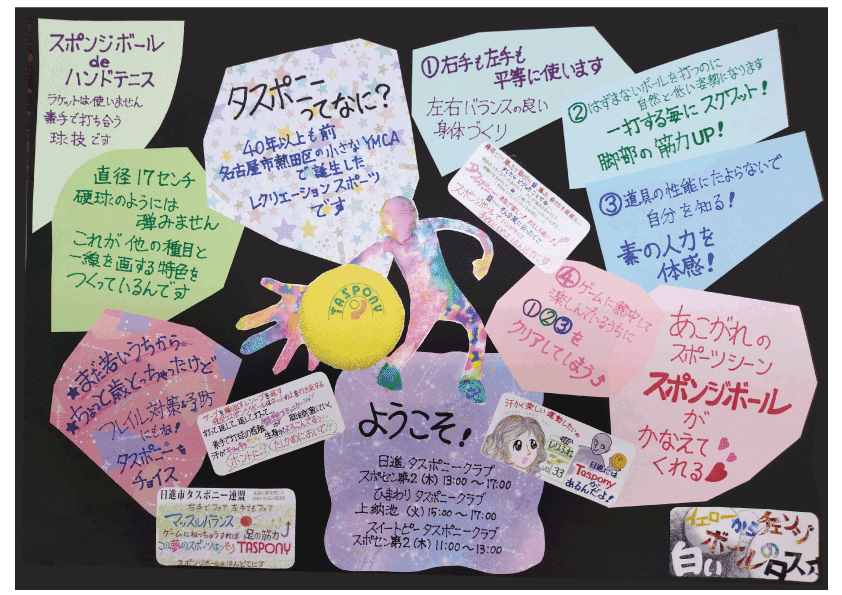 スポンジボール
de
ハンドテニス
ラケットは使いません
素手で打ち合う
球技です
タスポニー
ってなに?
40年以上も前
名古屋市熱田区の小さなYMCA
で誕生した
レクリエーションスポーツ
です
①右手も左手も
平等に使います
左右バランスの良い
身体づくり
②はずまないボールを打つのに
自然と低い姿勢になります
一打する毎にスクワット!
脚部の筋力UP!
直径17センチ
硬球のようには
弾みません
これが他の種目と
一線を画する特色を
つくっているんです
③道具の性能にたよらないで
自分を知る!
素の人力を
体感!
TASPONY
④ゲームに熱中して
楽しんでいるうちに
①②③を
クリアしてしまう
あこがれの
スポーツシーン
スポンジボール
が
かなえて
くれる
★まだ若いうちから
★ちょと歳とっちゃったけど
フレイル対策&予防
にもね!
タスポニーを
チョイス
打って返して、返して打って
ようこそ!
日進 タスポニークラブ
スポセン第2(木) 13:00〜17:00
ひまわり タスポニークラブ
上納池 (火) 15:00〜17:00
スイートピー タスポニークラブ
スポセン第2(木) 11:00〜13:00
汗かく楽しい運動したいの
日進には
Tasponyが
あるんだよ!
日進市タスポニー連盟
右手でフォア 左手でもフォア
マッスルバランス
足の筋力
この夢のスポーツはっそう TASPONY
イエローからチェンジ
白いボールのタスポ